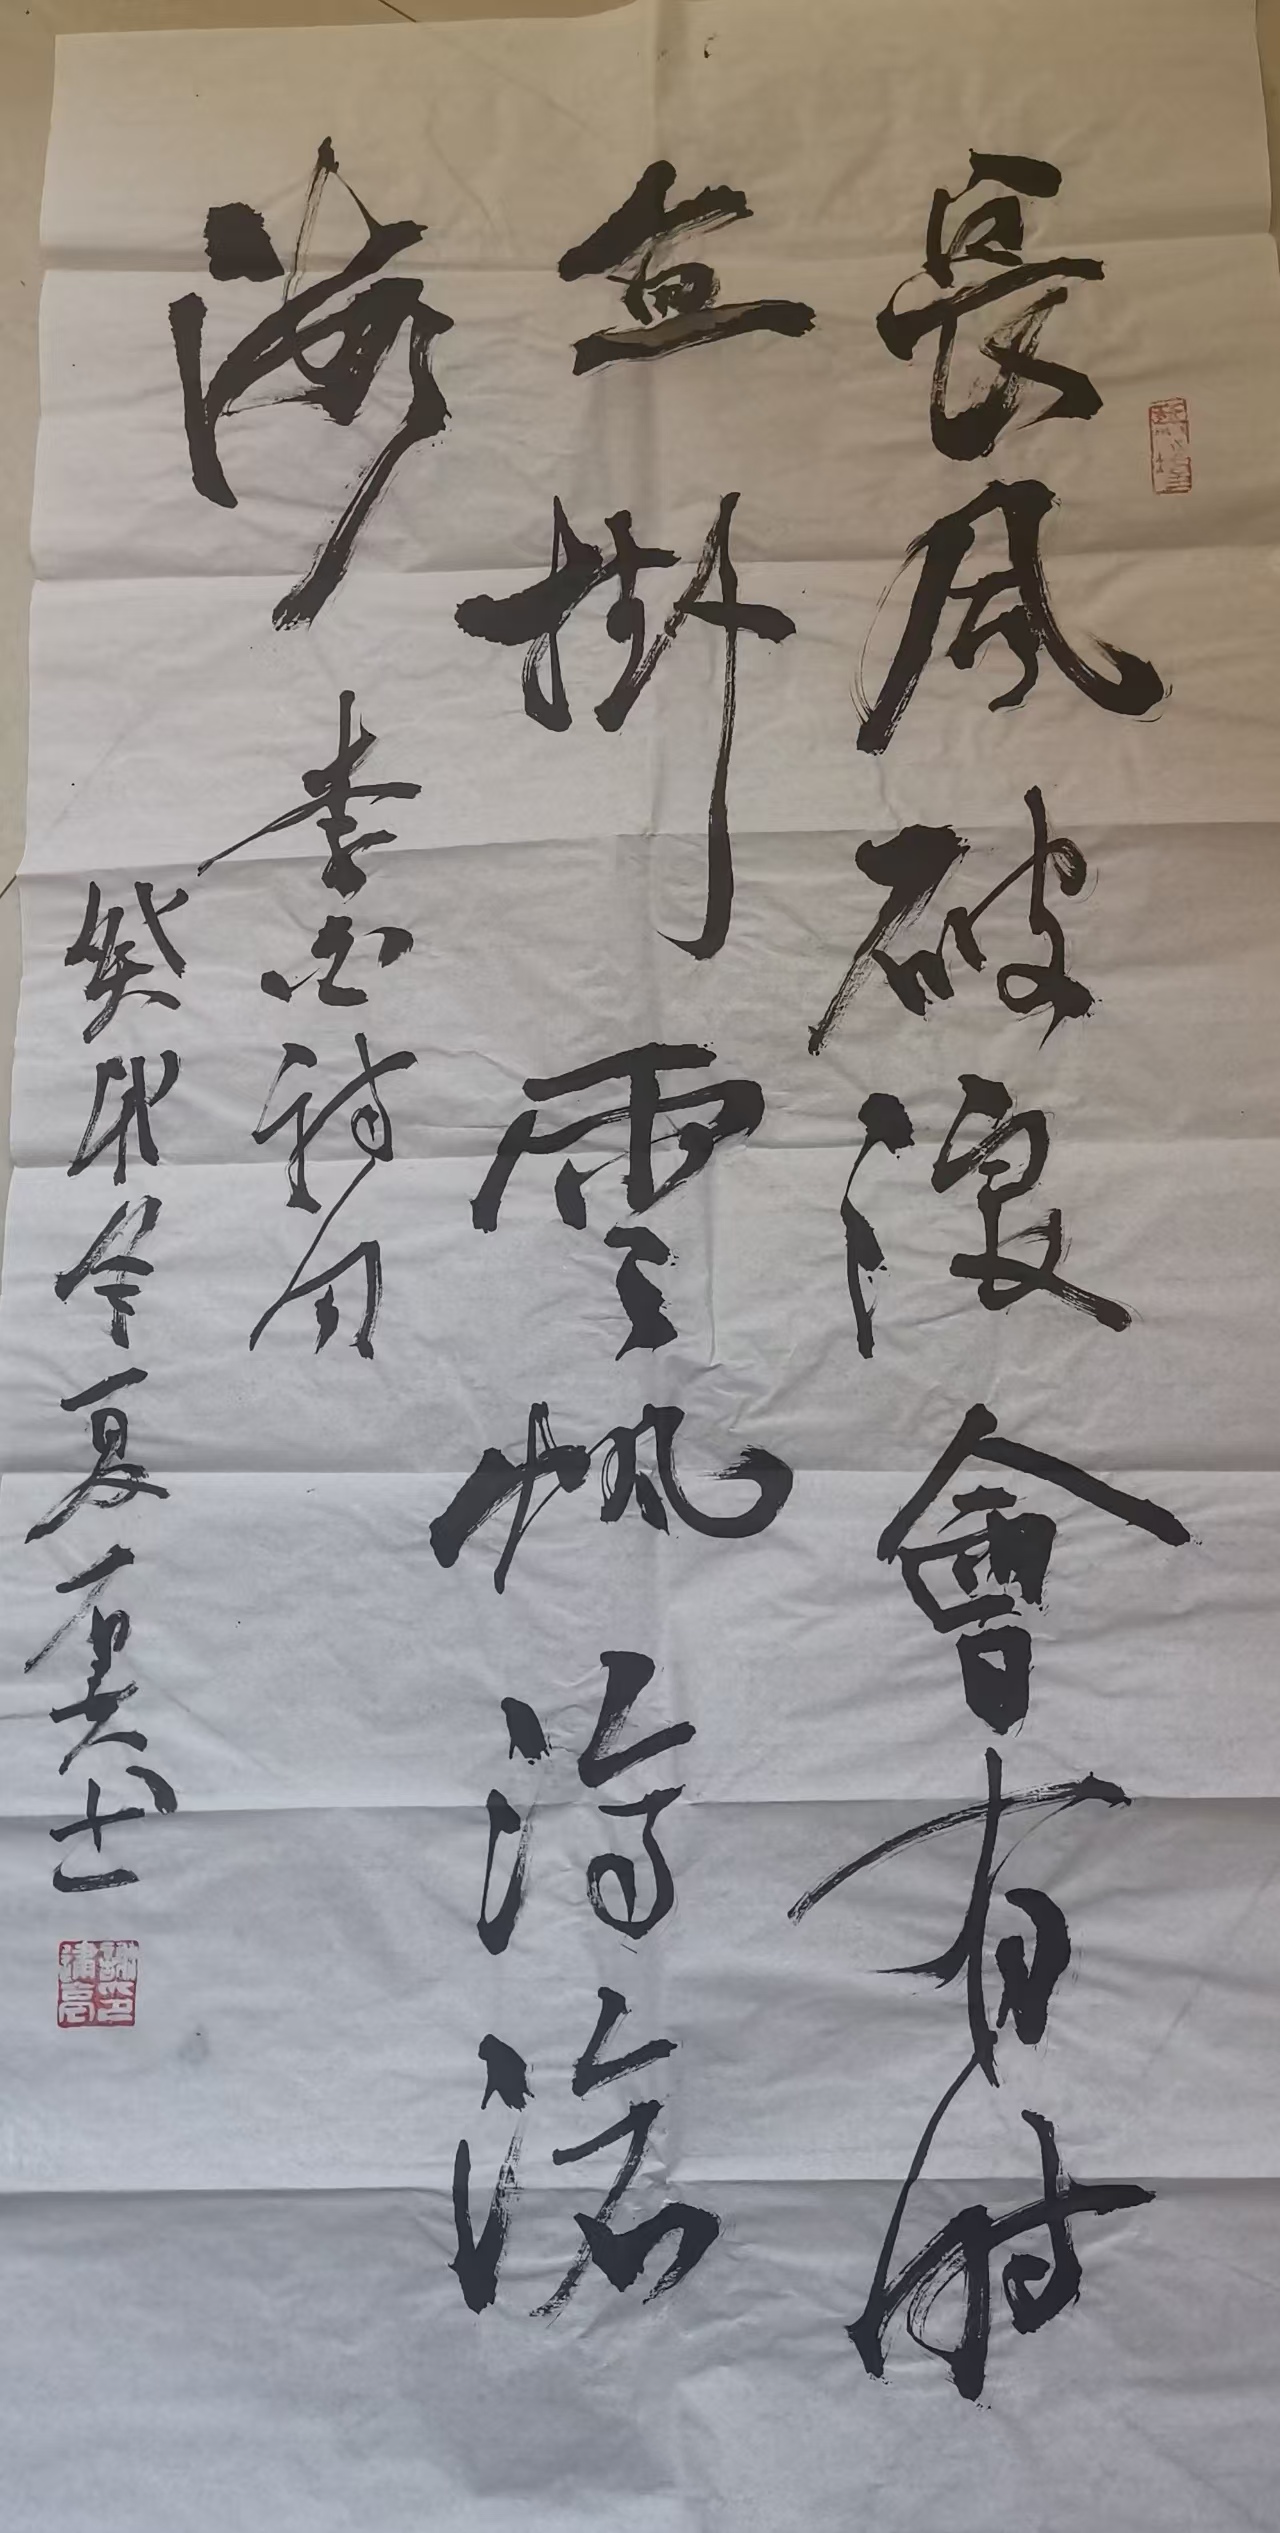 長風破浪會有時
直掛雲帆濟滄
海 李白詩句
癸卯年夏
謝印
建亮